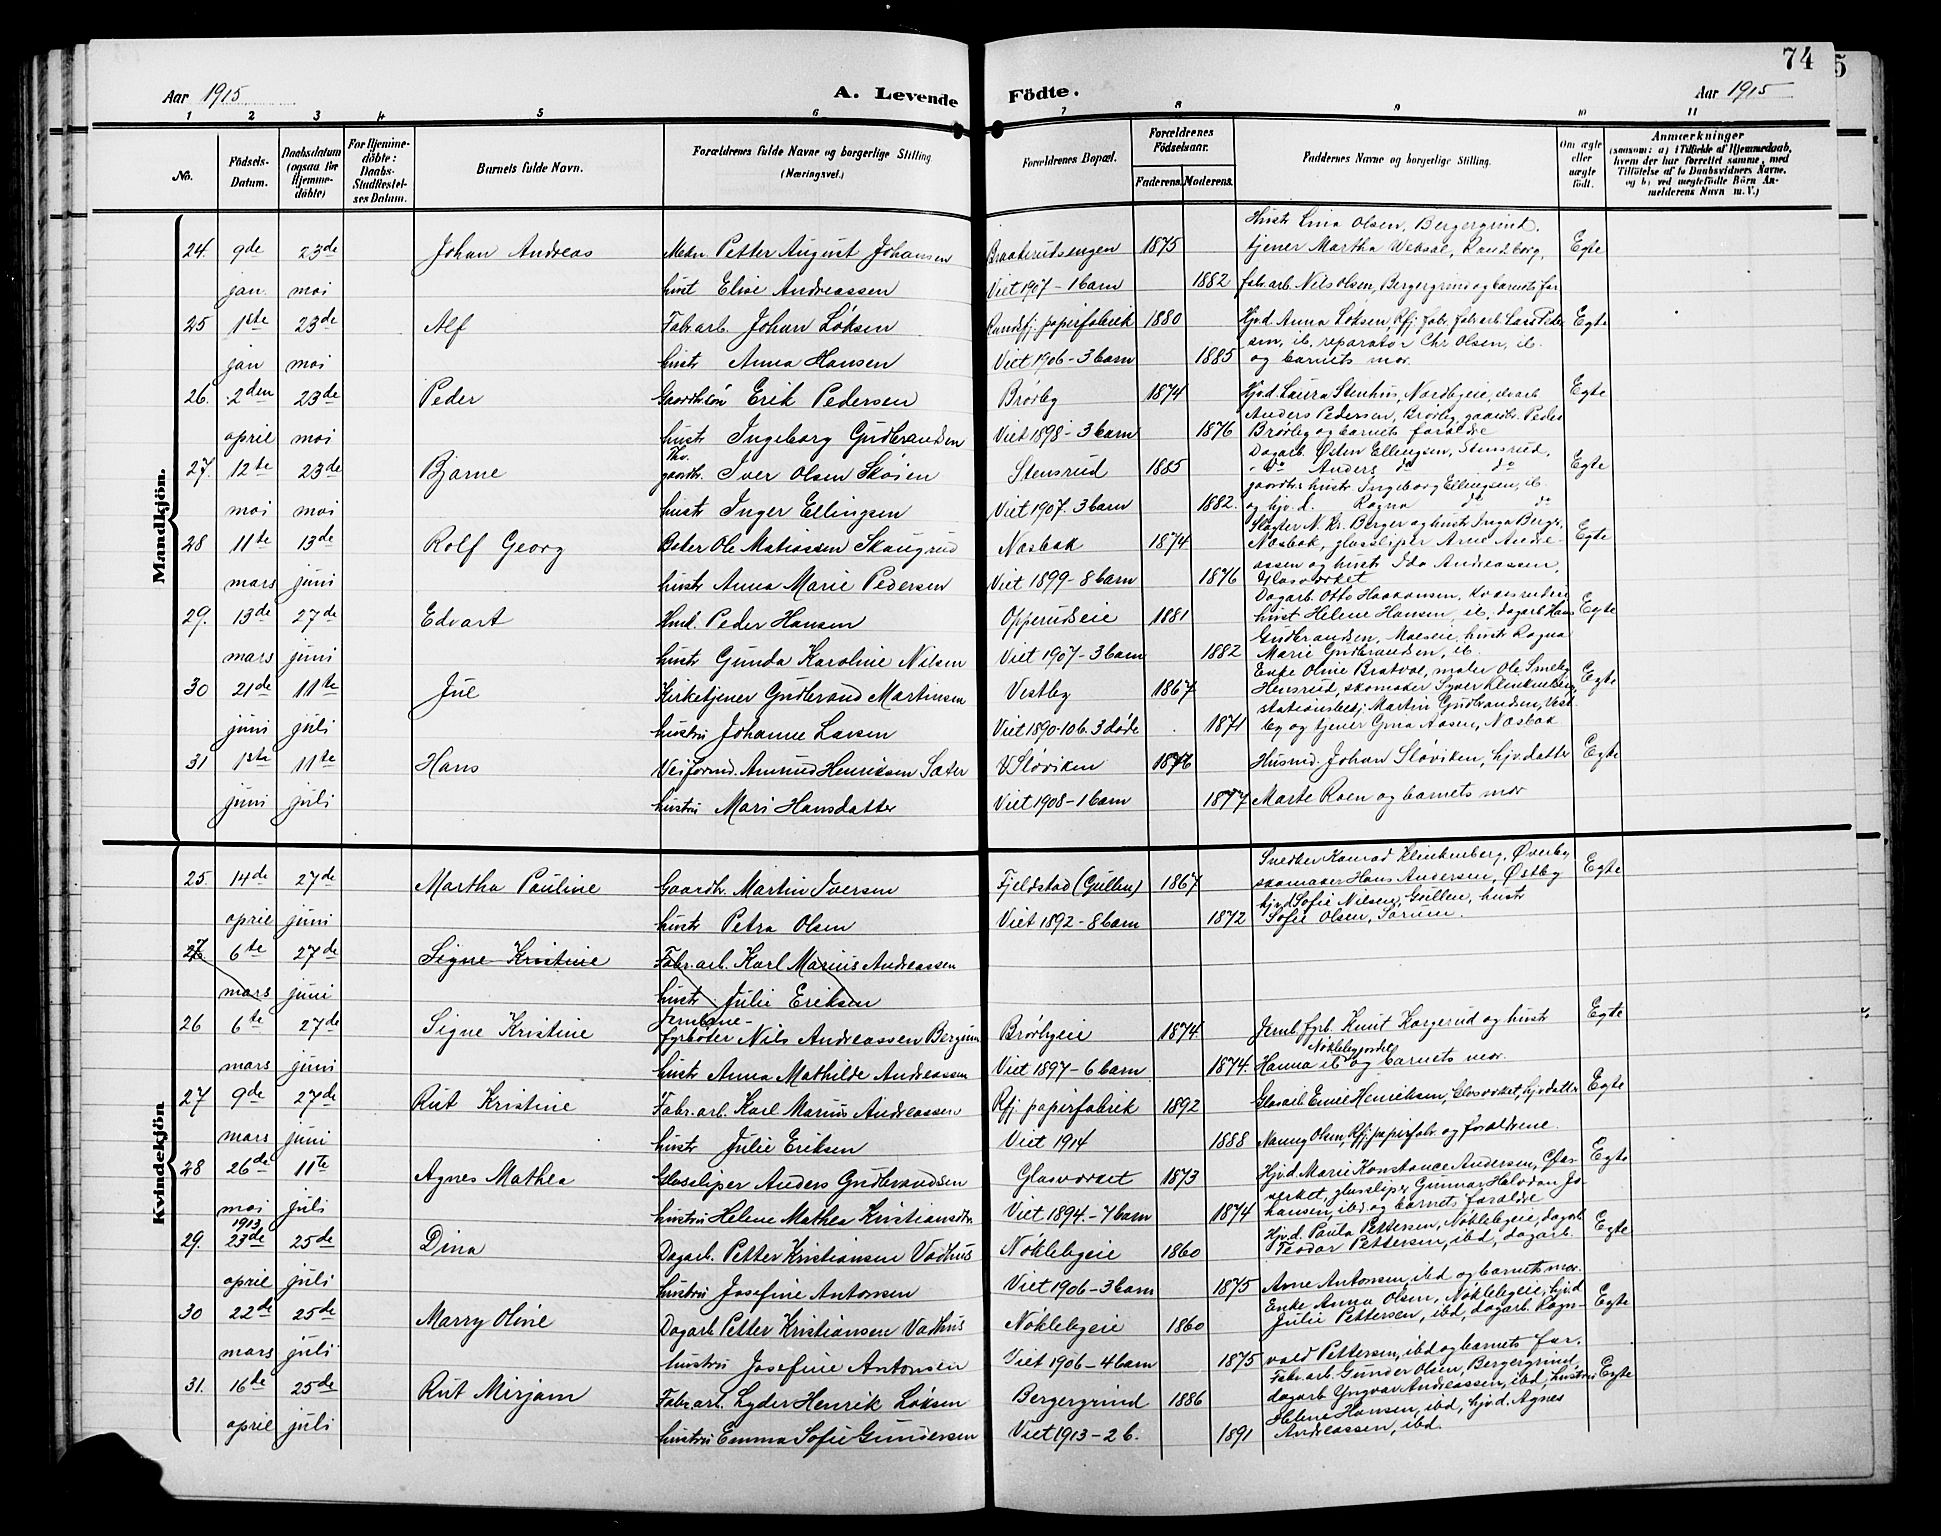 74
5
Aar 1915
A. Levende Födte.
Aar 1915
1 2 3 4 5 6 7 8 9 10 11
No.
Födsels-Datum.
Daabsdatum (ogsaa for Hjemmedöbte)
For Hjemmedöbte: Daabs-Stadfæstelses Datum.
Barnets fulde Navn.
Forældrenes fulde Navne og borgerlige Stilling (Næringsvei.)
Forældrenes Bopæl.
Forældrenes Födselsaar.
Faderens. Moderens.
Faddernes Navne og borgerlige Stilling.
Om ægte eller uægte födt.
Anmærkninger
(saasom: a) i Tilfælde af Hjemmedaab, hvem der har forrettet samme, med Tilföielse af to Daabsvidners Navne, og b) ved uægtefödte Börn Anmelderens Navn m. V.)
Mandkjön.
Hustr Lina Olsen, Bergergrind,
24. 9de 23de Johan Andreas Mekn. Petter August Johansen Braaterudsengen 1875 tjener Martha Veksal, Randborg, Egte
jan. mai hust Elise Andreassen Viet 1907 - 1 barn 1882 fabr.arb. Nils Olsen, Bergergrind og barnets far
25 1ste 23de Alf Fabr.arb. Johan Løksen Randsfj. papirfabrik 1880 Hjvd. Anna Løksen, Rfj. fabr. fabr.arb. Lars Peder Egte
sen, ib. reparatør Chr Olsen, ib.
jan mai hustr Anna Hansen Viet 1906 - 3 barn 1885 og barnets mor.
26. 2den 23de Peder Gaardbr.søn Erik Pedersen Brørby 1874 Hjvd. Laura Stenhus, Nordbyeie, Egte
Anders Pedersen, Brørby, gaardbr. Peder
april mai hustr Ingeborg Gudbrandsen Viet 1898 - 3 barn 1876 Brørby og barnets forældre
27. 12te 23de Bjarne gaardbr. Iver Olsen Skøien Stensrud 1885 Dagarb. Østen Ellingsen, Stensrud, Egte
do Anders do do
gaardbr hustr Ingeborg Ellingsen, ib.
mai mai hustr Inger Ellingsen Viet 1907. 3 barn 1882. og hjv.d. Ragna do do
28 11te 13de Rolf Georg Ole Matiassen Skaugrud Næsbak 1874 Slagter N. Kr. Berger og hustr Inga Berger, Egte
Næsbak, glassliper Arne Andre-
assen og hustr Ida Andreassen,
mars juni hustr Anna Marie Pedersen Viet 1899 - 8 barn 1876 Glasværket
29. 13de 27de Edvart Hmd. Peder Hansen Opperudseie 1881 Dagarb. Otto Haakonsen, Egte
hust Helene Hansen, ib. dagarb Hans
Gudbrandsen, Moeseie, hustr Ragna
mars juni hustr Gunda Karoline Nilsen Viet 1907 - 3 barn 1882 Marie Gudbrandsen, ib.
30 21de 11te Jul Kirketjener Gudbrand Martinsen Vestby 1867 Enke Oline Bratval, maler Ole Smeby Egte
Hensrud, skomaker Syver Klinkenberg,
stationsbetj Martin Gudbrandsen, Vest
juni juli hustru Johanne Larsen Viet 1890 - 10 b. 3 døde 1871 by og tjener Gina Aasen, Næsbak
31 1ste 11te Hans Veiformd. Amund Henriksen Sæter V Sløviken 1876 Husmd. Johan Sløviken, hjv.datter Egte
juni juli hustru Mari Hansdatter Viet 1908 - 1 barn 1877 Marte Roen og barnets mor
Kvindekjön
25. 14de 27de Martha Pauline Gaardbr. Martin Iversen Fjeldstad (Gullen) 1867 Snedker Konrad Klinkenberg, Øverby Egte
skomaker Hans Andersen, Østby
hjvd Sofie Nilsen, Gullen, hustr
april juni hustr Petra Olsen Viet 1892 - 8 barn 1872 Sofie Olsen, Sørum.
27 6te 27de Signe Kristine Fabr.arb. Karl Marius Andreassen
mars juni hustr. Julie Eriksen
26 6te 27de Signe Kristine Jernbane-
fyrbøter Nils Andreassen Bergum Brørbyeie 1874 Jernb. fyrb. Knut Korgerud og hustr Egte
Nøklebyjordet
mars juni hustr Anna Mathilde Andreassen Viet 1897 - 6 barn 1874. Hanna ib og barnets mor.
27 9de 27de Rut Kristine Fabr.arb. Karl Marius Andreassen Rfj. papirfabrik 1892 Glasarb Emil Henriksen, Glasværket, hjv.datter Egte
mars juni hustr Julie Eriksen Viet 1914 1888 Nanny Olsen, Rfj. papirfabr. og forældrene.
28 26de 11te Agnes Mathea Glassliper Anders Gudbrandsen Glasværket 1873 Hjvd. Marie Konstance Andersen, Glas- Egte
verket, glassliper Gunnar Halvdan Jo-
mai juli hustru Helene Mathea Kristiansdtr Viet 1894. - 7 barn 1874 hansen, ibd og barnets forældre
1913
29. 23de 25de Dina Dagarb. Petter Kristiansen Vadhus Nøklebyeie 1860 Hjv.d. Paula Pettersen, Nøklebyeie, dagarb Egte
Teodor Pettersen, ibd, dagarb.
april juli hustru Josefine Antonsen Viet 1906 - 3 barn 1875 Arne Antonsen, ibd og barnets mor.
30 22de 25de Marry Oline Dagarb Petter Kristiansen Vadhus Nøklebyeie 1860 Enke Anna Olsen, Nøklebyeie, hjv.d Egte
Julie Pettersen, ibd, dagarb. Ragn-
mars juli hustru Josefine Antonsen Viet 1906 - 4 barn 1875 vald Pettersen, ibd og barnets far.
31. 16de 25de Rut Mirjam Fabr.arb. Lyder Henrik Løksen Bergergrind 1886 Fabr.arb. Gunder Olsen, Bergergrind, Egte
dagarb Yngvar Andreassen, ibd, hustru
Helene Hansen, ibd, hjv.d. Agnes
april juli hustru Emma Sofie Gundersen Viet 1913 - 2 b. 1891 Andreassen, ibd.